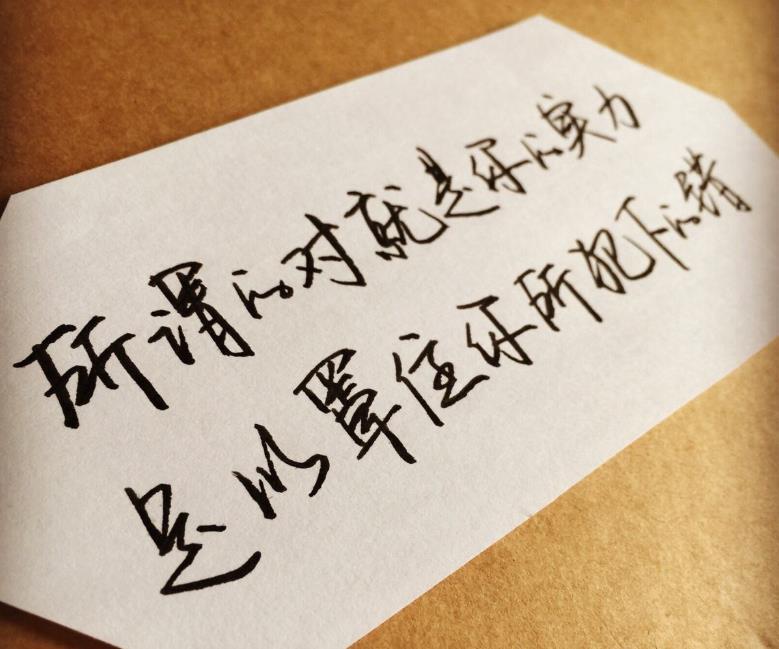 所谓的对就是你的实力
足以罩住你所犯下的错